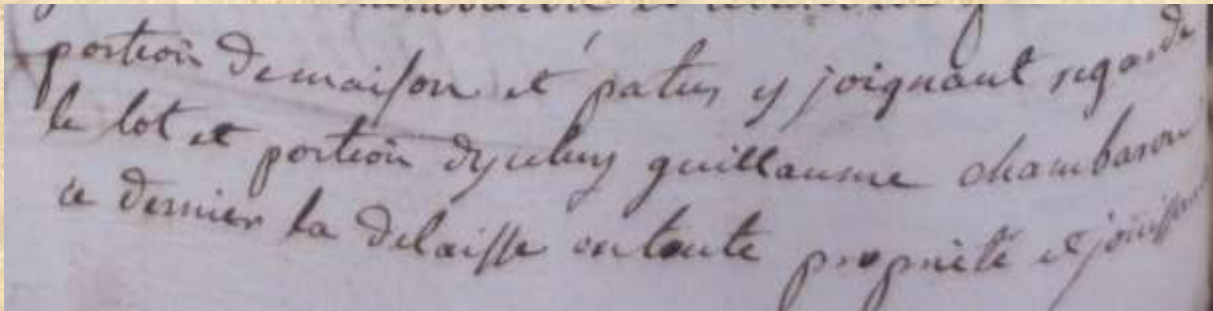 portion de maison et patus y joignant regarde
le lot et portion dyceluy guillaume chambaron
ce dernier la delaisse en toute propriété et jouissan